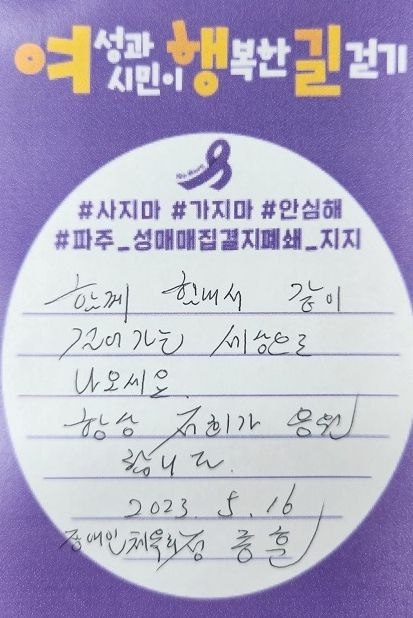 여성과 시민이 행복한 길 걷기
#사지마 #가지마 #안심해
#파주_성매매집결지폐쇄_지지
함께 힘내서 같이
걸어가는 세상으로
나오세요.
항상 저희가 응원
합니다.
2023. 5. 16
장애인체육회 정 훈